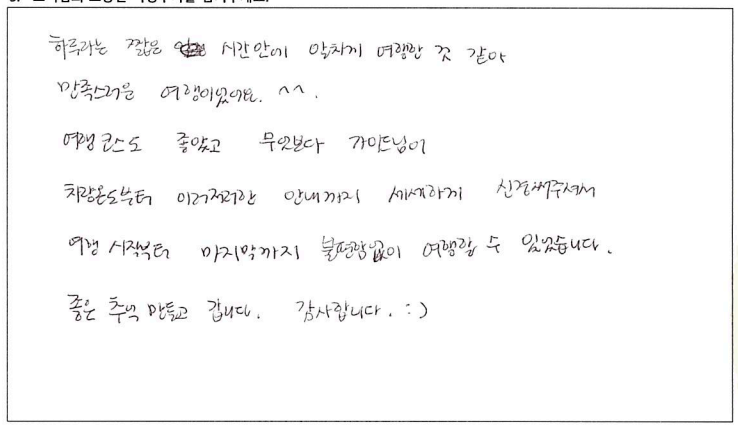 하루라는 짧은 시간안에 알차게 여행한 것 같아
만족스러운 여행이었어요. ^^.
여행 코스도 좋았고 무엇보다 가이드님이
차량온도부터 이러저러한 안내까지 세세하게 신경써주셔서
여행 시작부터 마지막까지 불편함없이 여행할 수 있었습니다.
좋은 추억 만들고 갑니다. 감사합니다. :)